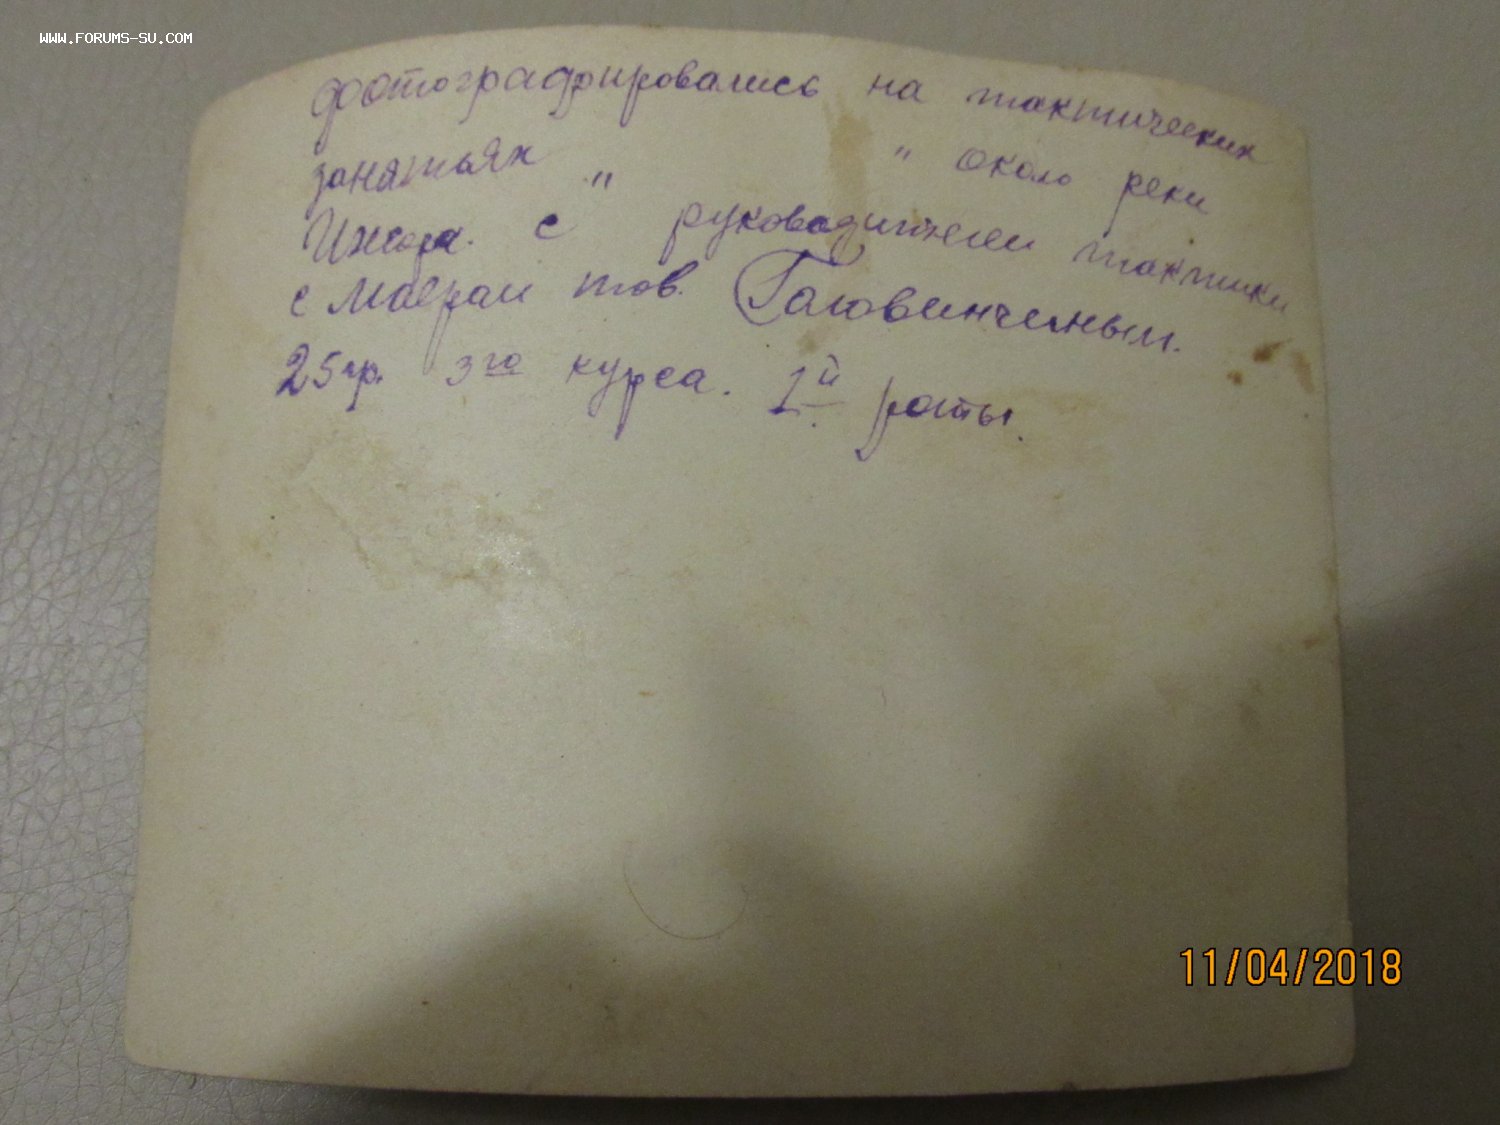 WWW.FORUMS-SU.COM
фотографировались на тактических
занятьях " " около реки
Ижора. с руководителем тактики
с маером тов. Головинченым.
25гр. 3го курса. 1й роты.
11/04/2018